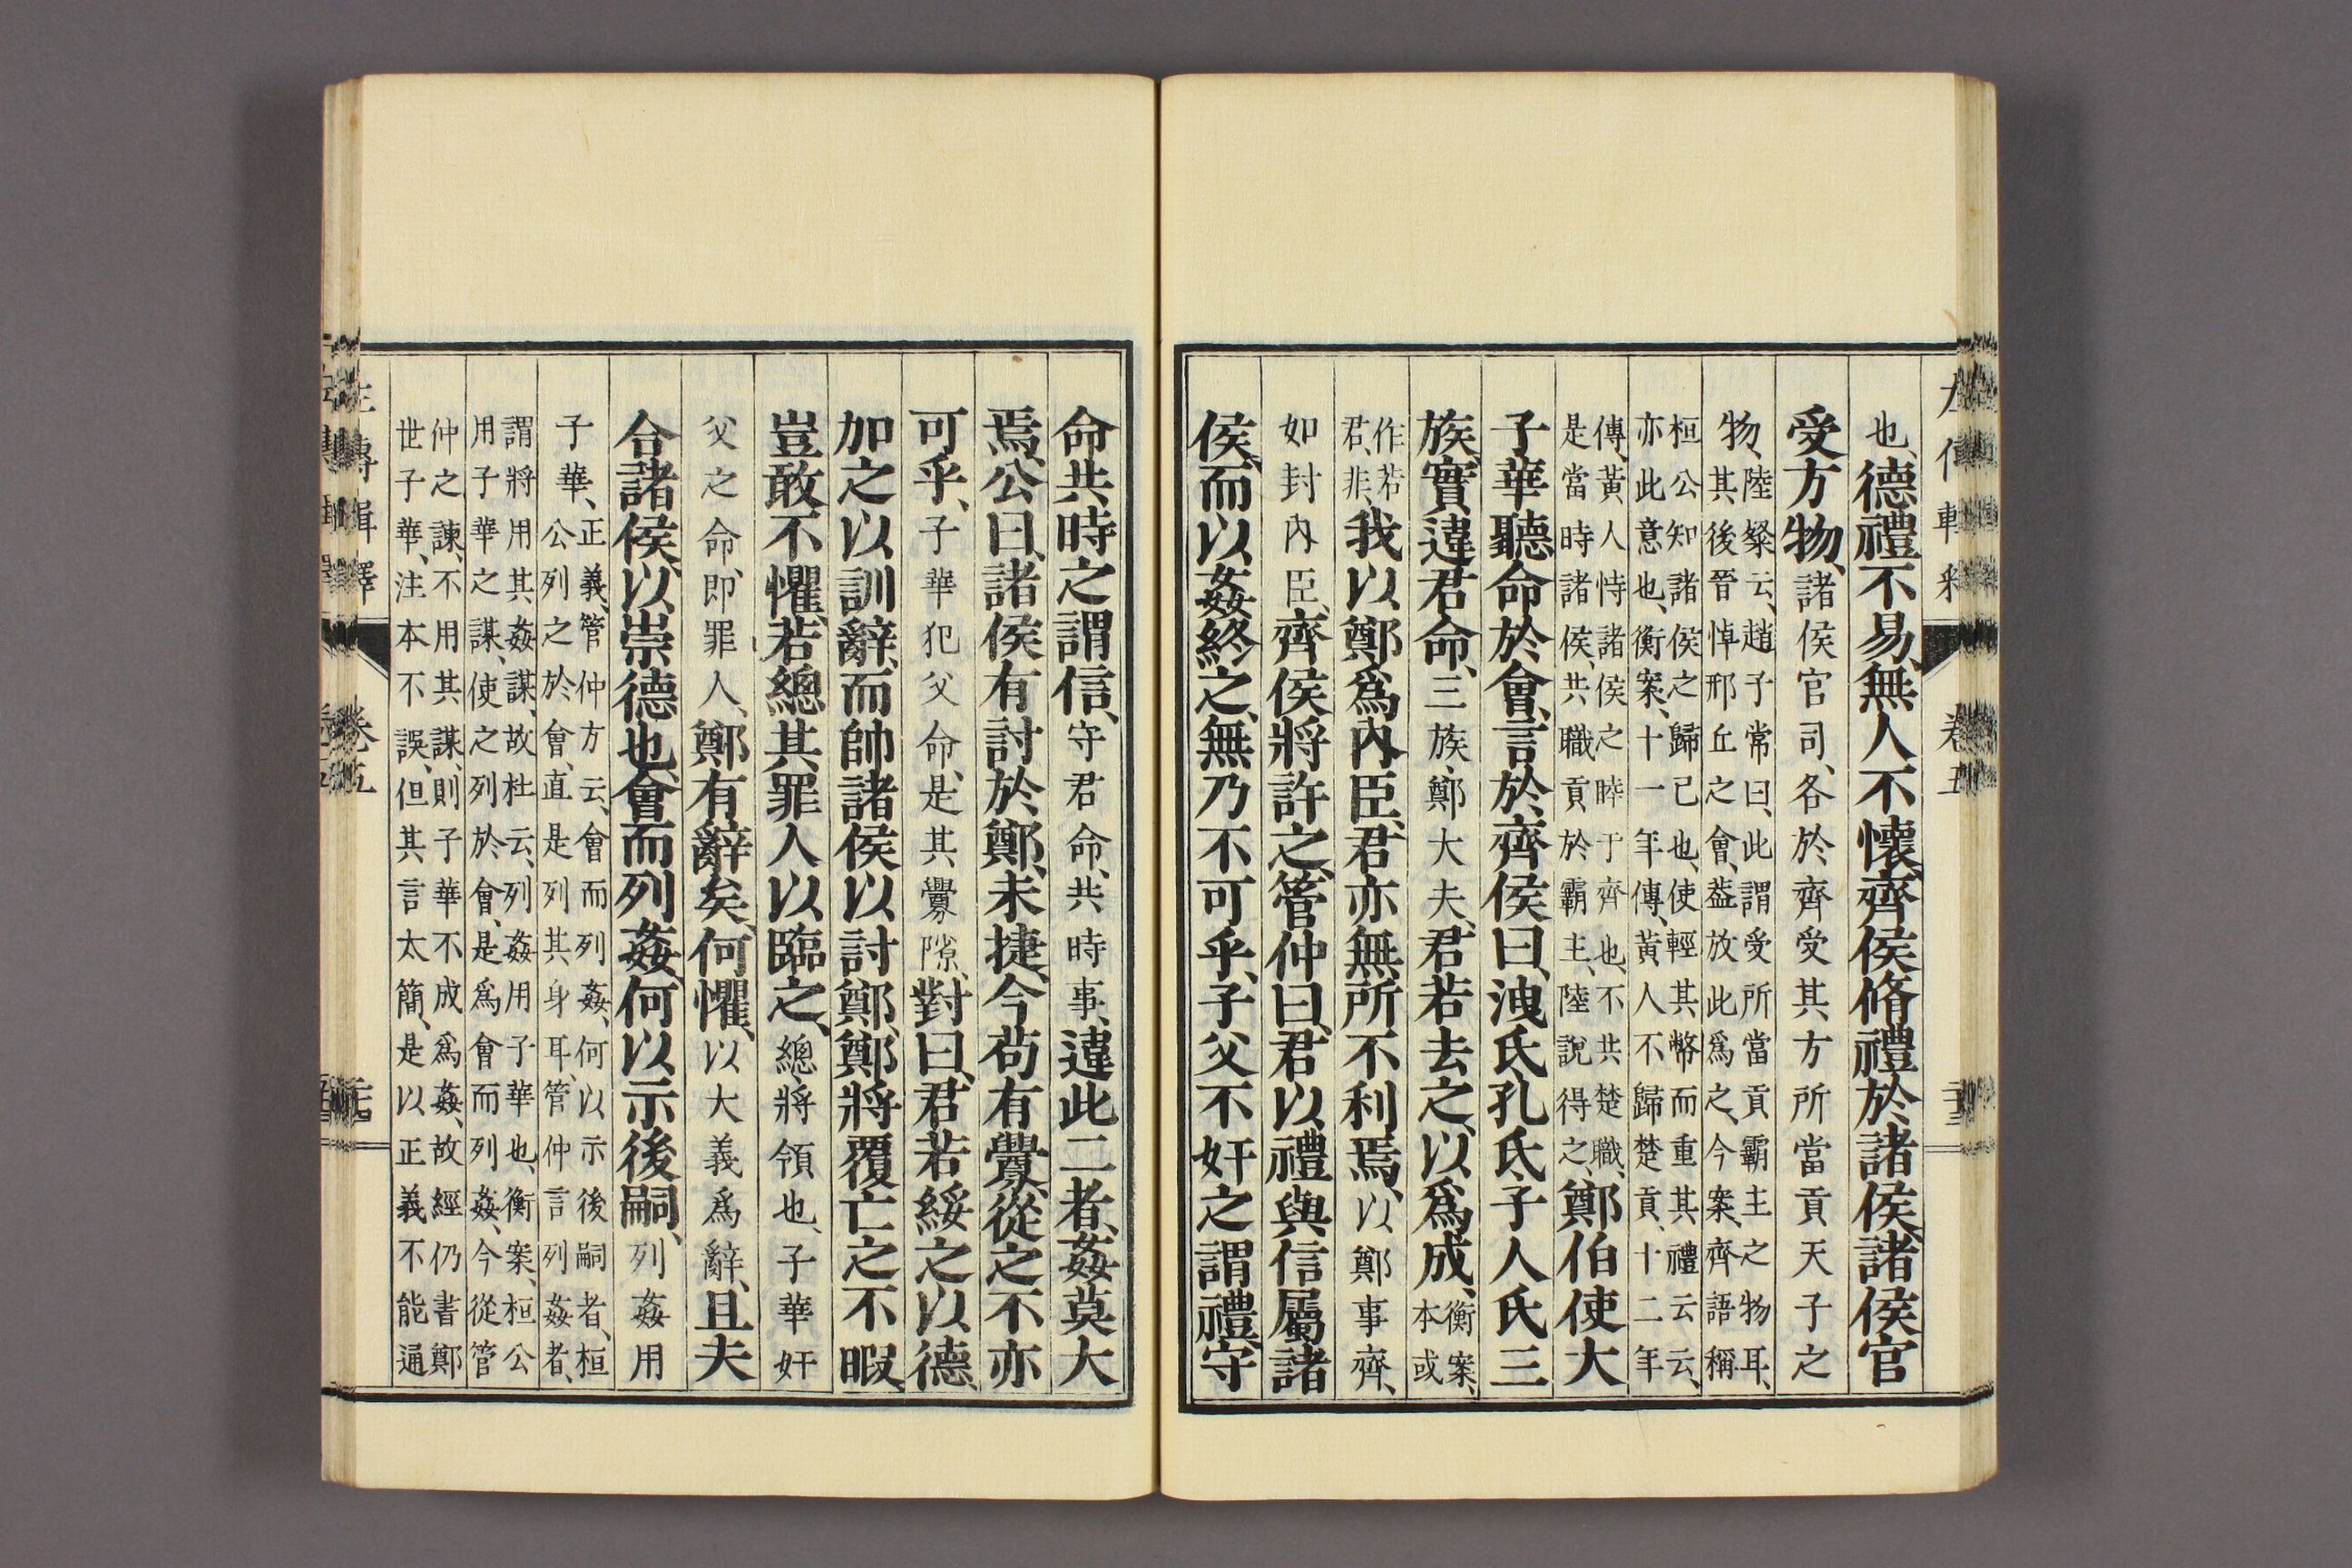 也、德禮不易、無人不懷、齊侯脩禮於諸侯、諸侯官
受方物、諸侯官司、各於齊受其方所當貢天子之
物、陸粲云、趙子常曰、此謂受所當貢霸主之物耳、
其後晉悼邢丘之會、葢放此爲之、今案、齊語稱
桓公知諸侯之歸己也、使輕其幣而重其禮云云、
亦此意也、衡案、十一年傳、黃人不歸楚貢、十二年
傳、黃人恃諸侯之睦于齊也、不共楚職、
是當時諸侯、共職貢於霸主、陸說得之、鄭伯使大
子華聽命於會、言於齊侯曰、洩氏孔氏子人氏三
族、實違君命、三族、鄭大夫、君若去之、以爲成、衡案、本或
作若君、非、我以鄭爲內臣、君亦無所不利焉、以鄭事齊、
如封內臣、齊侯將許之、管仲曰、君以禮與信屬諸
侯、而以姦終之、無乃不可乎、子父不奸之謂禮、守
命共時之謂信、守君命、共時事、違此二者、姦莫大
焉、公曰、諸侯有討於鄭、未捷、今苟有釁、從之不亦
可乎、子華犯父命、是其釁隙、對曰、君若綏之以德、
加之以訓辭、而帥諸侯以討鄭、鄭將覆亡之不暇、
豈敢不懼、若總其罪人以臨之、總將領也、子華奸
父之命、即罪人、鄭有辭矣、何懼、以大義爲辭、且夫
合諸侯、以崇德也、會而列姦、何以示後嗣、列姦用
子華、正義、管仲方云、會而列姦、何以示後嗣者、桓
公列之於會、直是列其身耳、管仲言列姦者、
謂將用其姦謀、故杜云、列姦用子華也、衡案、桓公
用子華之謀、使之列於會、是爲會而列姦、今從管
仲之諫、不用其謀、則子華不成爲姦、故經仍書鄭
世子華、注本不誤、但其言太簡、是以正義不能通
左傳輯釋
卷五